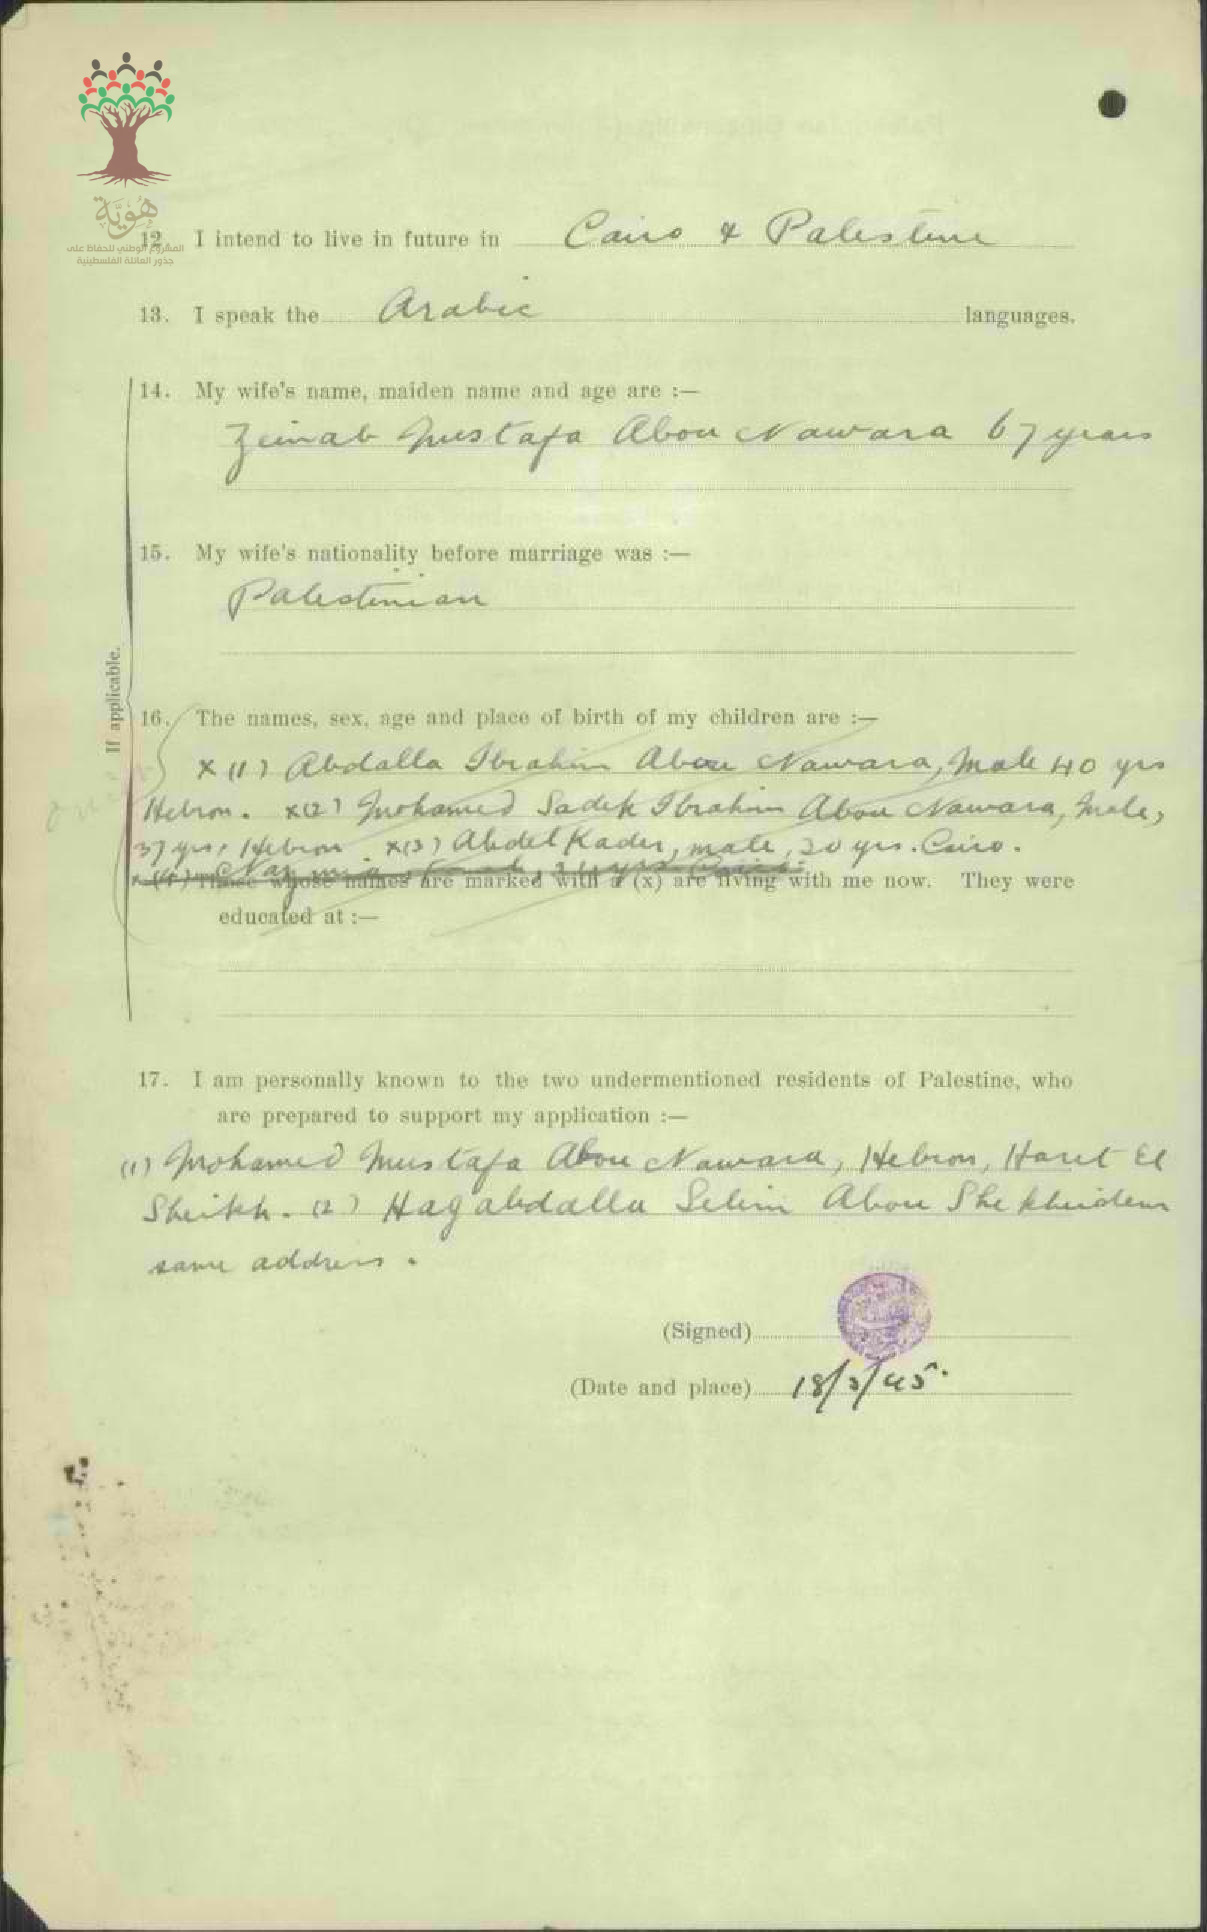 هُوِيَّة
المشروع الوطني للحفاظ على
جذور العائلة الفلسطينية
12. I intend to live in future in Cairo & Palestine
13. I speak the Arabic languages.
14. My wife's name, maiden name and age are :—
Zeinab Mustafa Abou Nawara 67 years
15. My wife's nationality before marriage was :—
Palestinian
If applicable.
16. The names, sex, age and place of birth of my children are :—
x (1) Abdalla Ibrahim Abou Nawara, Male 40 yrs
Hebron. x(2) Mohamed Sadek Ibrahim Abou Nawara, Male,
37 yrs, Hebron. x(3) Abdel Kader, male, 20 yrs. Cairo.
x (4) Cairo.
Those whose names are marked with a (x) are living with me now. They were
educated at :—
17. I am personally known to the two undermentioned residents of Palestine, who
are prepared to support my application :—
(1) Mohamed Mustafa Abou Nawara, Hebron, Haret El
Sheikh. (2) Hag Abdalla Selim Abou
same address.
(Signed)
(Date and place) 18/3/45.